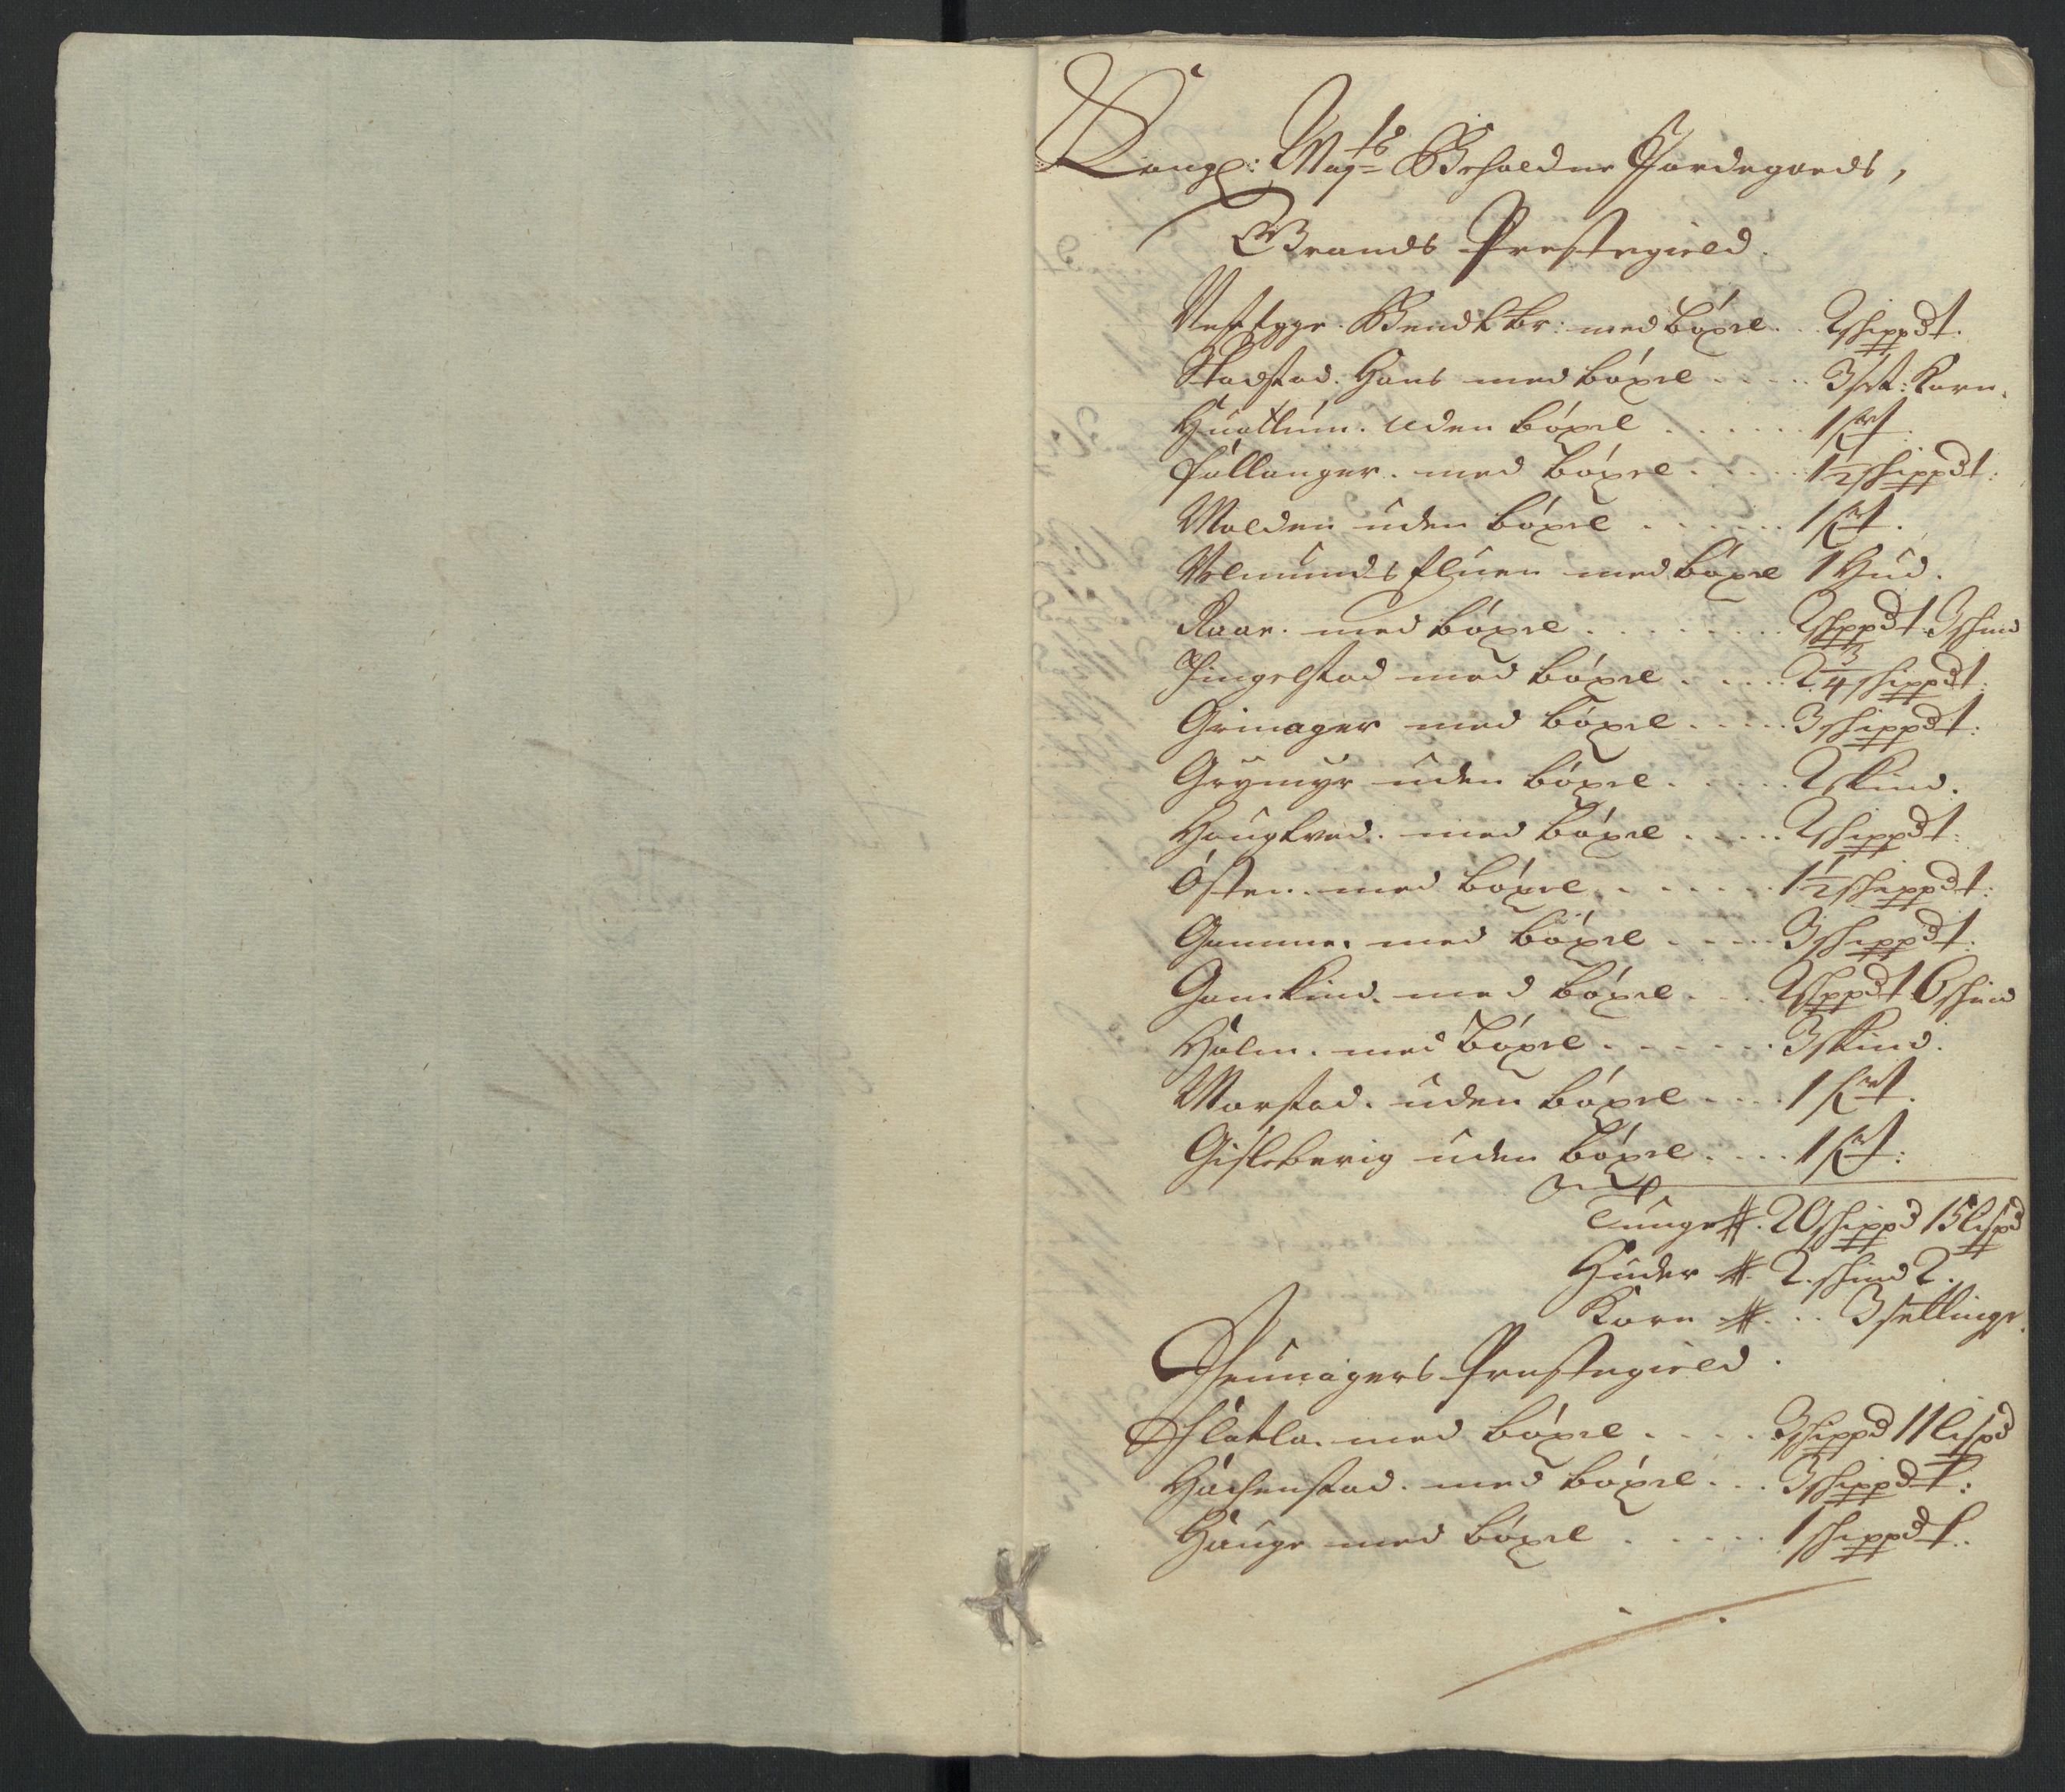 Kongl: May.ts Beholdne Jordegoeds,
Grands Prestegield.
Neftyge. Bendt Br: med böxel . . 2 schippdt.
Stadstad. Hans med böxel . . . . 3 set: Korn.
Huattum. uden böxel . . . . . . 1 frt.
Fallanger. med böxel . . . . . 1½ schippdt:
Molden uden böxel . . . . . . 1 frt.
Velmunds Eluen med böxel 1 Hud.
Raae. med böxel . . . . . . . 2 schppdt. 3 schind
Tingelstad med böxel . . . . . 2¾ schippdt:
Grinager med böxel . . . . . 3 schippdt:
Grymyr uden böxel . . . . . 2 skind.
Haugtved. med böxel . . . . . 2 schippdt:
Østen. med böxel . . . . . . . 1½ schippdt:
Gamme. med böxel . . . . . 3 schippdt:
Gamkind. med böxel . . . . 2 schppdt. 6 schind
Holm. med böxel . . . . . . 3 skind.
Morstad. uden böxel . . . . 1 frt.
Gisleberig uden böxel . . . . 1 frt:
Tunge #. 20 schippd 15 lispd
Huder #. 2. schind 2.
Korn #. . . 3 settinge.
Jeunagers Prestegield.
Slatla. med böxel . . . . . 3 schippd 11 lispd
Hachenstad. med böxel . . . 3 schippdt:
Hauge med böxel . . . . . . 1 schippdt.